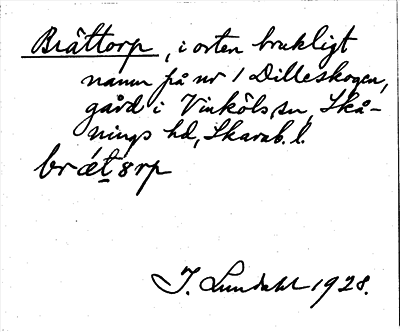 Brättorp, i orten brukligt
namn på nr 1 Dilleskogen,
gård i Vinköls sn, Skå-
nings hd, Skarab. l.
brǽt8rp
I. Lundahl 1928.